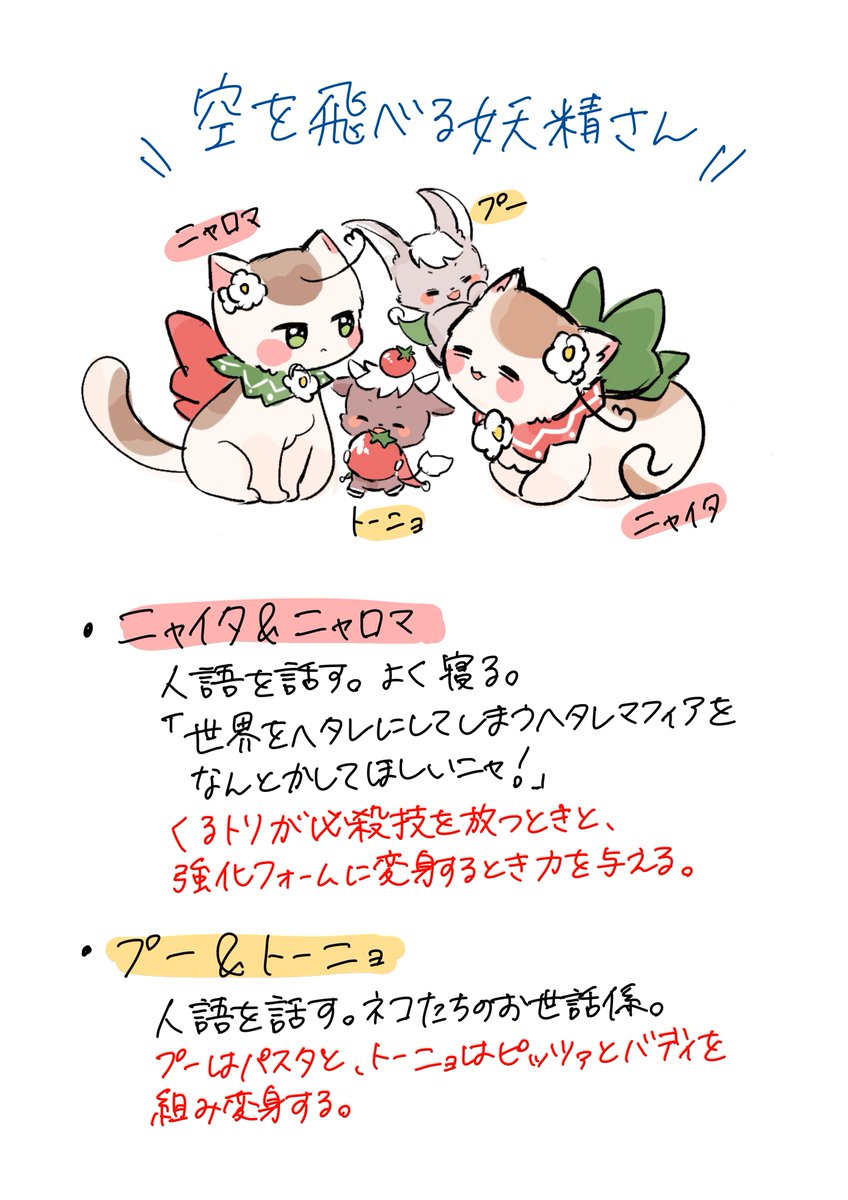 空を飛べる妖精さん
ニャロマ
プー
トーニョ
ニャイタ
・ニャイタ&ニャロマ
人語を話す。よく寝る。
「世界をヘタレにしてしまうヘタレマフィアを
なんとかしてほしいニャ!」
くるトリが必殺技を放つときと、
強化フォームに変身するとき力を与える。
・プー&トーニョ
人語を話す。ネコたちのお世話係。
プーはパスタと、トーニョはピッツァとバディを
組み変身する。